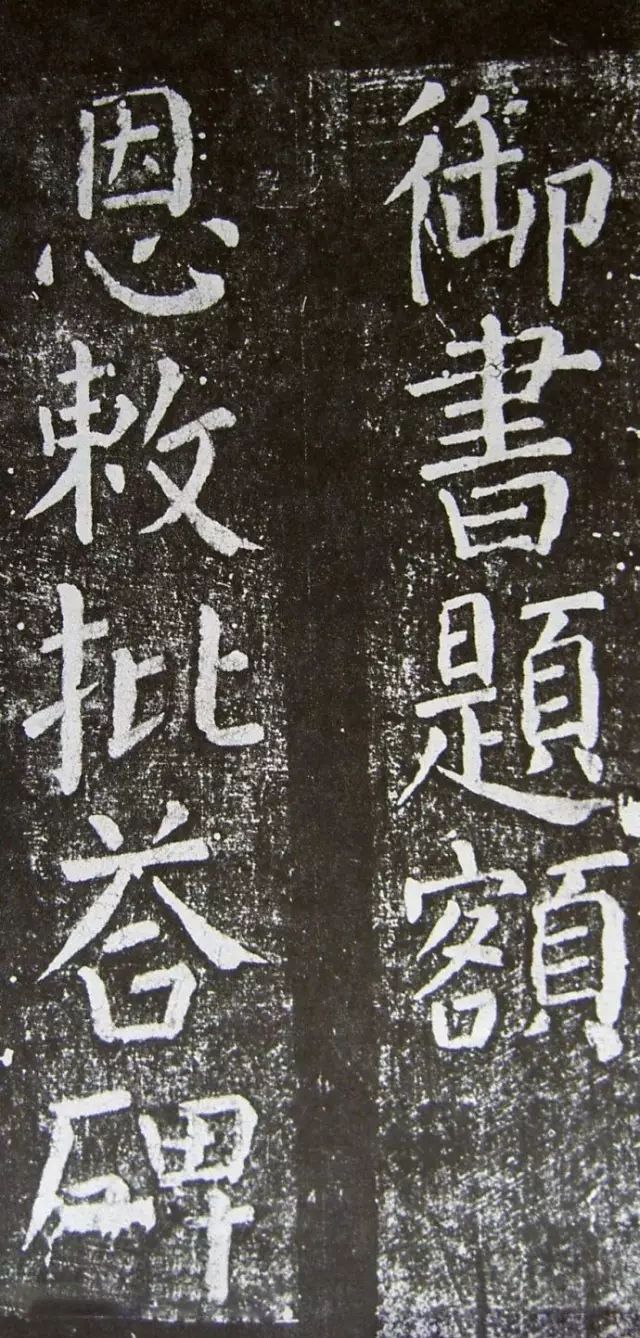 御書題額
恩敕批荅碑